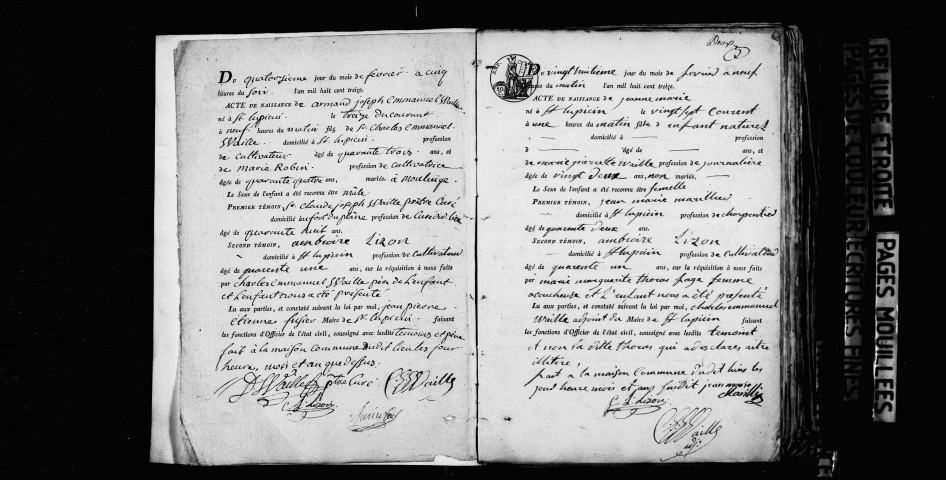 Du quatorzieme jour du mois de fevrier a cinq
heures du soir l'an mil huit cent treize.
ACTE DE NAISSANCE de armand joseph Emmanuel Waille
né à St lupicin le treize du courant
à neuf heures du matin fils de Sr Charles Emmanuel
Waille domicilié à St lupicin profession
de cultivateur âgé de quarante trois ans, et
de marie Robin profession de cultivatrice
âgée de quarante quatre ans, mariés à
Le Sexe de l'enfant a été reconnu être mâle
PREMIER TÉMOIN, Sr Claude joseph Waille prêtre Curé
domicilié au fort du plâne profession de
âgé de quarante huit ans.
SECOND TÉMOIN, ambroise Lizon
domicilié à St lupicin profession de cultivateur
âgé de quarante une ans, sur la réquisition à nous faite
par charles Emmanuel Waille père de l'enfant
et l'enfant nous a été présenté
Lu aux parties, et constaté suivant la loi par moi, jean pierre
Etienne Maire de St lupicin faisant
les fonctions d'Officier de l'état civil, consigné avec lesdits temoins et père
fait à la maison commune dudit lieu les jour
heure, mois et an que dessus.
Waille ptre Curé Waille
Lizon
Deux
Du vingt huitieme jour du mois de fevrier a neuf
heures du matin l'an mil huit cent treize.
ACTE DE NAISSANCE de jeanne marie
né à St lupicin le vingt sept Courent
à une heures du matin fils d enfant naturel
domicilié à profession
d âgé de ans, et
de marie pierrette Waille profession de journaliere
âgée de vingt deux ans, non mariés
Le Sexe de l'enfant a été reconnu être femelle
PREMIER TÉMOIN, jean marie
domicilié à St lupicin profession de charpentier
âgé de quarente deux ans.
SECOND TÉMOIN, ambroise Lizon
domicilié à St lupicin profession de Cultivateur
âgé de quarente un ans, sur la réquisition à nous faite
par marie marguerite thoras sage femme
acoucheuse et L'enfant nous a été presenté
Lu aux parties, et constaté suivant la loi par moi, charles emmanuel
Waille adjoint du Maire de St lupicin faisant
les fonctions d'Officier de l'état civil, consigné avec lesdits temoint
et non la ditte thoras qui a declaré être
illitere,
fait a la maison Commune dudit lieu les
jour heure mois et ans susdit jean marie
Lizon
Waille
adj.
RELIURE ETROITE
PAGES DE COULEUR ECRITURES FINES
PAGES MOUILLEES